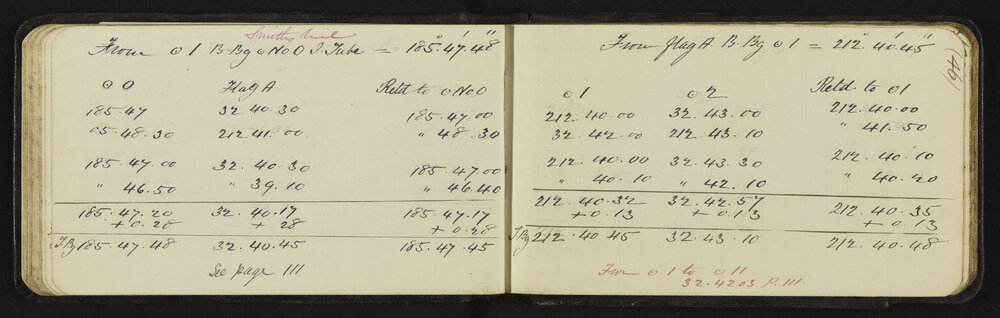 Smiths line
From ⊙ 1 B. Bg ⊙ No 0 I. Tube = 185°.47'.48"
⊙ 0 Flag A Retd to ⊙ No 0
185.47 32.40.30 185.47.00
05.48.30 212.41.00 " 48.30
185.47.00 32.40.30 185.47.00
" 46.50 " 39.10 " 46.40
185.47.20 32.40.17 185.47.17
+0.28 + 28 + 0.28
T Bg 185.47.48 32.40.45 185.47.45
See page 111
(46)
From flag A. B. Bg ⊙ 1 = 212°.40'.45"
⊙ 1 ⊙ 2 Retd. to ⊙ 1
212.40.00 32.43.00 212.40.00
32.42.00 212.43.10 " 41.50
212.40.00 32.43.30 212.40.10
" 40.10 " 42.10 " 40.20
212.40.32 32.42.57 212.40.35
+0.13 +0.13 +0.13
T Bg 212.40.45 32.43.10 212.40.48
From ⊙ 1 to ⊙ 11
32.4203 P. 111